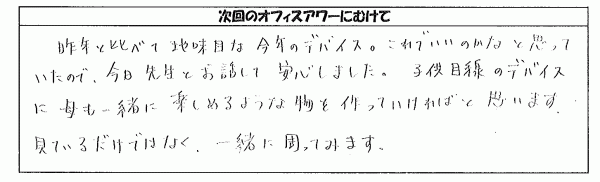 次回のオフィスアワーにむけて
昨年と比べて地味目な今年のデバイス。これでいいのかなと思って
いたので、今日先生とお話して安心しました。子供目線のデバイス
に母も一緒に楽しめるような物を作っていければと思います。
見ているだけではなく、一緒に周ってみます。